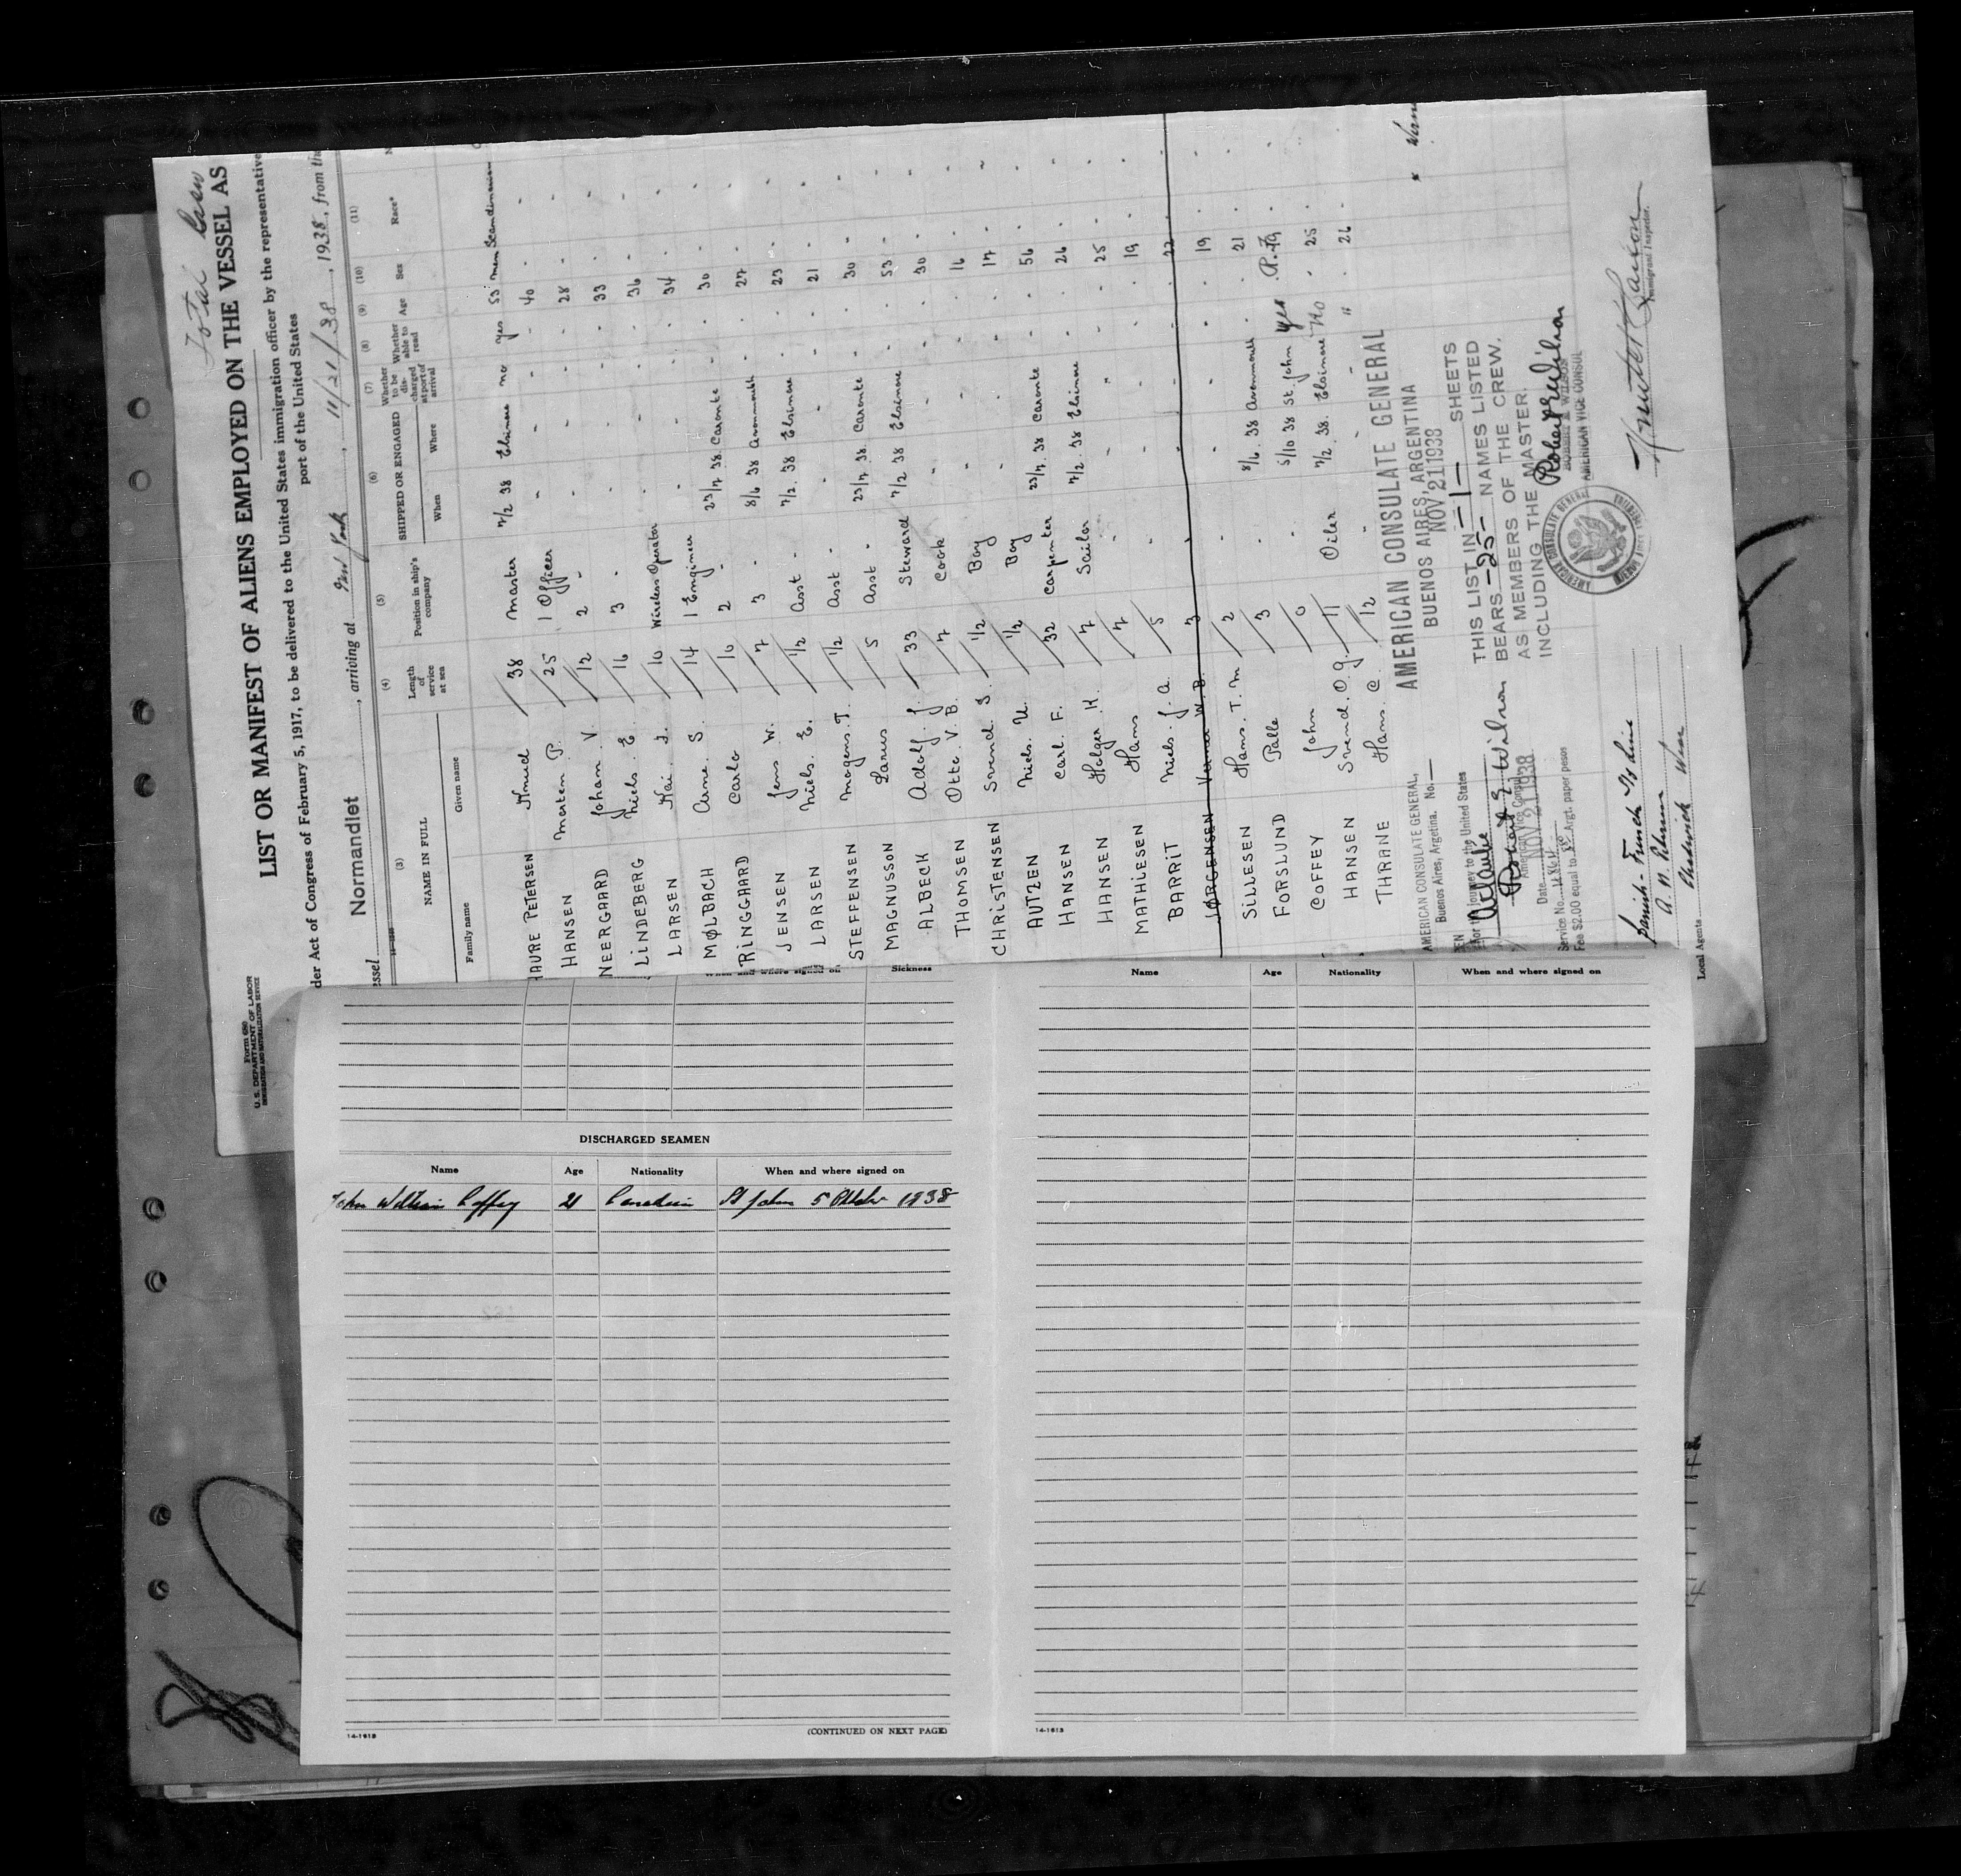 Total Crew
Form 680
U. S. DEPARTMENT OF LABOR
IMMIGRATION AND NATURALIZATION SERVICE
LIST OR MANIFEST OF ALIENS EMPLOYED ON THE VESSEL AS
der Act of Congress of February 5, 1917, to be delivered to the United States immigration officer by the representative
port of the United States
ssel Normandiet, arriving at New York, 11/21/38, 1938, from the
(3) (4) (5) (6) (7) (8) (9) (10) (11)
NAME IN FULL Length of service at sea Position in ship's company SHIPPED OR ENGAGED Whether to be discharged at port of arrival Whether able to read Age Sex Race*
Family name Given name When Where
HAURE PETERSEN Knud 38 Master 7/2 38 Elsinore no yes 53 men Scandinavian
HANSEN Morten P. 25 1 Officer - - - - 40 - -
NEERGAARD Johan V. 12 2 - - - - - 28 - -
LINDEBERG Niels E. 16 3 - - - - - 33 - -
LARSEN Kai J. 10 Wireless Operator - - - - 36 - -
MØLBACH Arne S. 14 1 Engineer - - - - 34 - -
RINGGAARD Carlo 10 2 - 23/7 38 Caronte - - 30 - -
JENSEN Jens W. 7 3 - 8/6 38 Avonmouth - - 27 - -
LARSEN Niels E. 1/2 Asst - 7/2 38 Elsinore - - 23 - -
STEFFENSEN Mogens T. 1/2 Asst - - - - - 21 - -
MAGNUSSON Larus 5 Asst - 23/7 38 Caronte - - 30 - -
ALBECK Adolf J. 33 Steward 7/2 38 Elsinore - - 53 - -
THOMSEN Otto V. B. 7 Cook - - - - 30 - -
CHRISTENSEN Svend S. 1/2 Boy - - - - 16 - -
AUTZEN Niels U. 1/2 Boy - - - - 17 - -
HANSEN Carl F. 32 Carpenter 23/7 38 Caronte - - 56 - -
HANSEN Holger K. 7 Sailor 7/2 38 Elsinore - - 26 - -
MATHIESEN Hans 7 - - - - - 25 - -
BARRIT Niels J. A. 5 - - - - - 19 - -
JØRGENSEN Verner W. B. 3 - - - - - 22 - -
SILLESEN Hans T. M. 2 - - - - - 19 - -
FORSLUND Palle 3 - 8/6 38 Avonmouth - - 21 - -
COFFEY John 0 - 5/10 38 St. John yes
HANSEN Svend O. J. 11 Oiler 7/2 38 Elsinore No - 25 - -
THRANE Hans C. 12 - - - - " - 26 - -
AMERICAN CONSULATE GENERAL
BUENOS AIRES, ARGENTINA
NOV 21 1938
THIS LIST IN -1- SHEETS
BEARS -25- NAMES LISTED
AS MEMBERS OF THE CREW.
INCLUDING THE MASTER.
AMERICAN VICE CONSUL
AMERICAN CONSULATE GENERAL
BUENOS AIRES
AMERICAN CONSULATE GENERAL,
Buenos Aires, Argetina. No.
for the journey to the United States
Robert E. Wilson
American Vice Consul
Date NOV 21 1938
Service No.
Fee $2.00 equal to Argt. paper pesos
Immigrant Inspector.
Danish-French
Local Agents
When and where signed on Sickness
DISCHARGED SEAMEN
Name Age Nationality When and where signed on
John William Coffey 21 Canadian St John 5 Oktober 1938
14-1613
(CONTINUED ON NEXT PAGE)
Name Age Nationality When and where signed on
14-1613